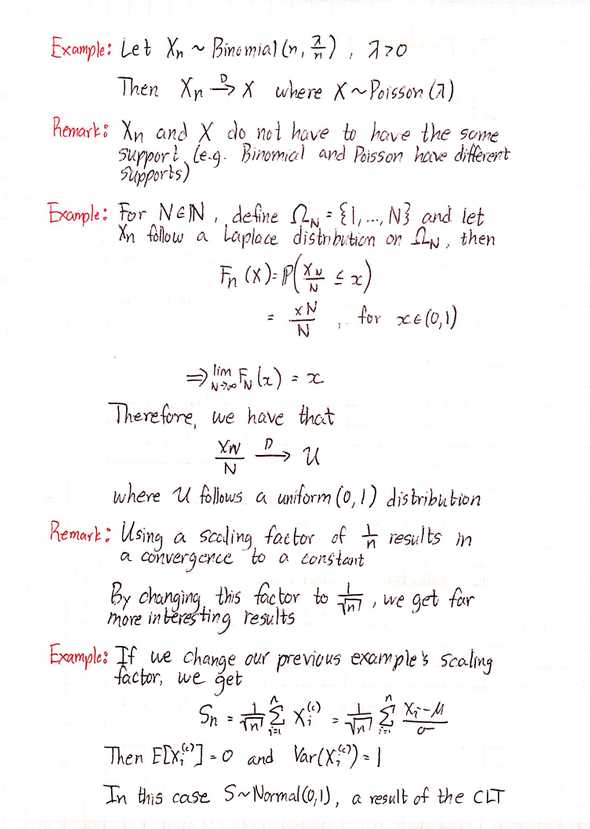 Example: Let Xₙ ~ Binomial(n, λ/n), λ>0
Then Xₙ →ᴰ X where X~Poisson(λ)
Remark: Xₙ and X do not have to have the same
support (e.g. Binomial and Poisson have different
supports)
Example: For N∈ℕ, define Ω_N = {1, ..., N} and let
Xₙ follow a Laplace distribution on Ω_N, then
Fₙ(X) = ℙ(X_N/N ≤ x)
= xN/N, for x∈(0,1)
⇒ lim N→∞ F_N(x) = x
Therefore, we have that
X_N/N →ᴰ U
where U follows a uniform(0,1) distribution
Remark: Using a scaling factor of 1/n results in
a convergence to a constant
By changing this factor to 1/√n, we get far
more interesting results
Example: If we change our previous example's scaling
factor, we get
Sₙ = 1/√n Σ_{i=1}^n Xᵢ^(c) = 1/√n Σ_{i=1}^n (Xᵢ-μ)/σ
Then E[Xᵢ^(c)] = 0 and Var(Xᵢ^(c)) = 1
In this case S~Normal(0,1), a result of the CLT